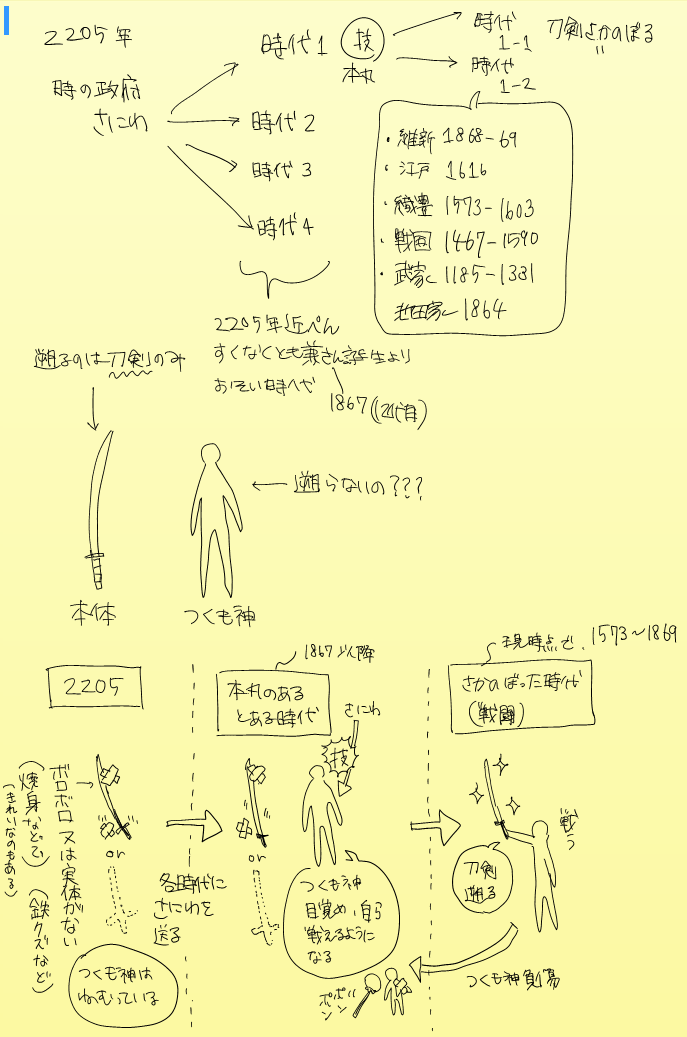 2205年
時の政府
さにわ
時代1
技
本丸
時代
1-1
時代
1-2
刀剣さかのぼる
〃
時代2
時代3
時代4
・維新 1868-69
・江戸 1616
・織豊 1573-1603
・戦国 1467-1590
・武家 1185-1331
池田家 1864
2205年近ぺん
すくなくとも兼さん誕生より
おそい時代
1867
遡るのは刀剣のみ
本体
つくも神
遡らないの???
2205
1867以降
本丸のある
とある時代
現時点で、1573〜1869
さかのぼった時代
(戦闘)
ボロボロ又は実体がない
(焼身などで)
(きれいなのもある)
(鉄クズなど)
or
つくも神は
ねむっている
各時代に
さにわを
送る
さにわ
技
or
つくも神
目覚め、自ら
戦えるように
なる
刀剣
遡る
戦う
つくも神負傷
ポンポン